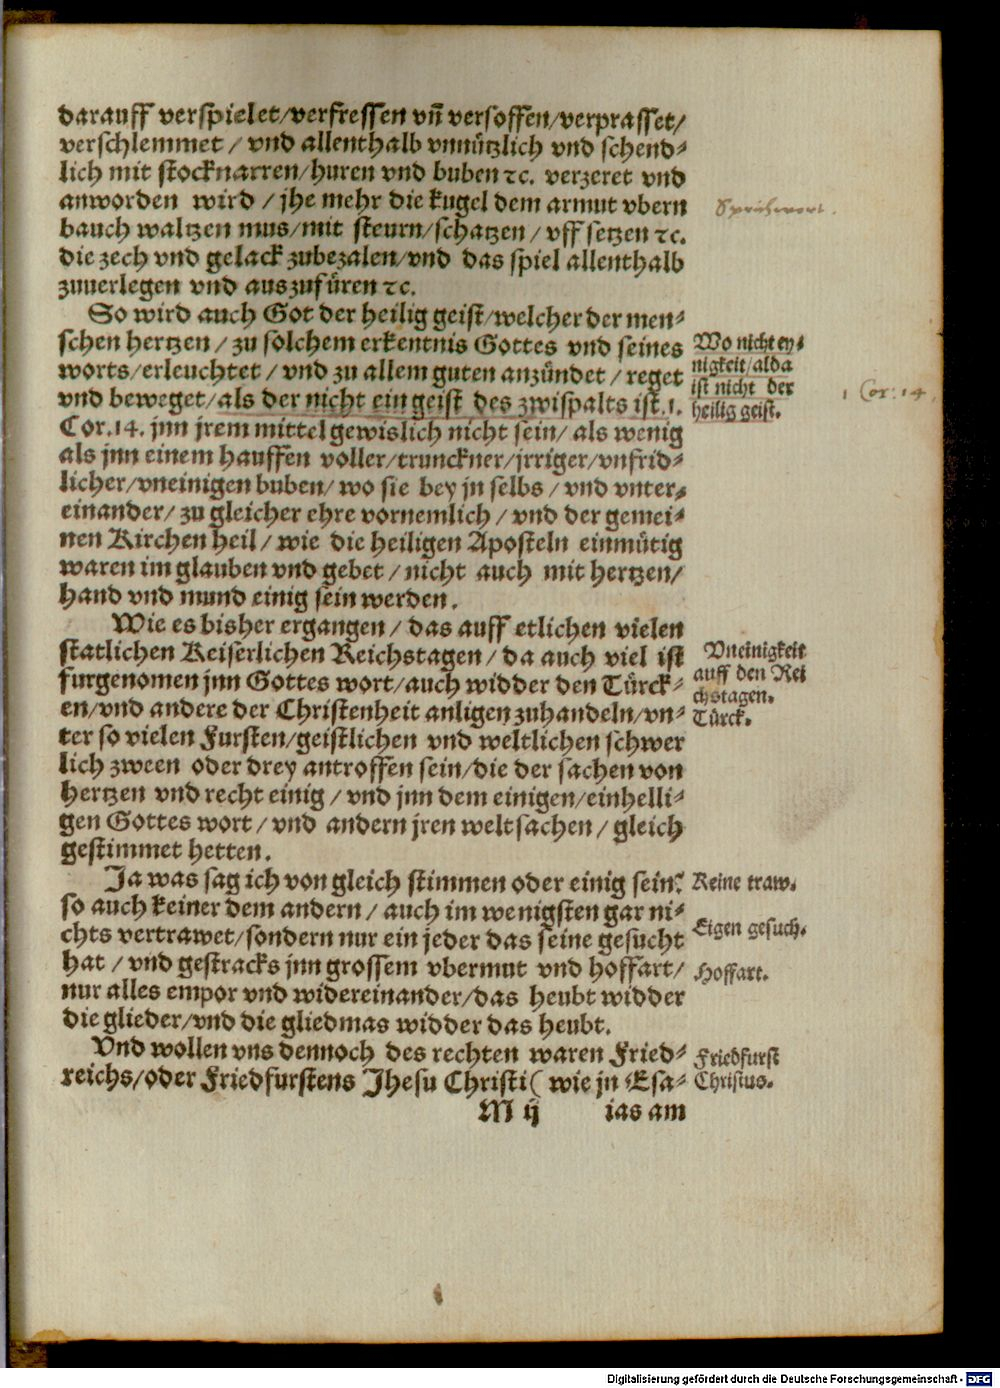 darauff verspielet/verfressen vñ versoffen/verprasset/
verschlemmet / vnd allenthalb vnnützlich vnd schend⸗
lich mit stocknarren/huren vnd buben ꝛc. verzeret vnd
anworden wird / jhe mehr die kugel dem armut vbern
Sprichwort.
bauch waltzen mus/mit steurn/schatzen / vff setzen ꝛc.
die zech vnd gelack zubezalen/vnd das spiel allenthalb
zuuerlegen vnd auszufüren ꝛc.
So wird auch Got der heilig geist/welcher der men⸗
schen hertzen / zu solchem erkentnis Gottes vnd seines
worts/erleuchtet / vnd zu allem guten anzündet / reget
vnd beweget/als der nicht ein geist des zwispalts ist. 1.
Cor. 14. jnn jrem mittel gewislich nicht sein/ als wenig
als jnn einem hauffen voller/trunckner/jrriger/vnfrid⸗
licher/vneinigen buben/ wo sie bey jn selbs / vnd vnter⸗
einander/ zu gleicher ehre vornemlich / vnd der gemei⸗
nen Kirchen heil / wie die heiligen Aposteln einmütig
waren im glauben vnd gebet / nicht auch mit hertzen/
hand vnd mund einig sein werden.
Wo nicht ey⸗
nigkeit/alda
ist nicht der
heilig geist.
1 Cor: 14.
Wie es bisher ergangen / das auff etlichen vielen
statlichen Keiserlichen Reichstagen / da auch viel ist
furgenomen jnn Gottes wort/auch widder den Türck⸗
en/vnd andere der Christenheit anligen zuhandeln/vn⸗
ter so vielen Fursten/geistlichen vnd weltlichen schwer
lich zween oder drey antroffen sein/die der sachen von
hertzen vnd recht einig / vnd jnn dem einigen/einhelli⸗
gen Gottes wort / vnd andern jren welt sachen / gleich
gestimmet hetten.
Vneinigkeit
auff den Rei
chstagen.
Türck.
Ja was sag ich von gleich stimmen oder einig sein?
so auch keiner dem andern / auch im wenigsten gar ni⸗
chts vertrawet/sondern nur ein jeder das seine gesucht
hat / vnd gestracks jnn grossem vbermut vnd hoffart/
nur alles empor vnd widereinander/das heubt widder
die glieder/vnd die gliedmas widder das heubt.
Keine traw.
Eigen gesuch.
Hoffart.
Vnd wollen vns dennoch des rechten waren Fried⸗
reichs/oder Friedfurstens Jhesu Christi ( wie jn Esa⸗
Friedfurst
Christus.
M ij ias am
Digitalisierung gefördert durch die Deutsche Forschungsgemeinschaft - DFG